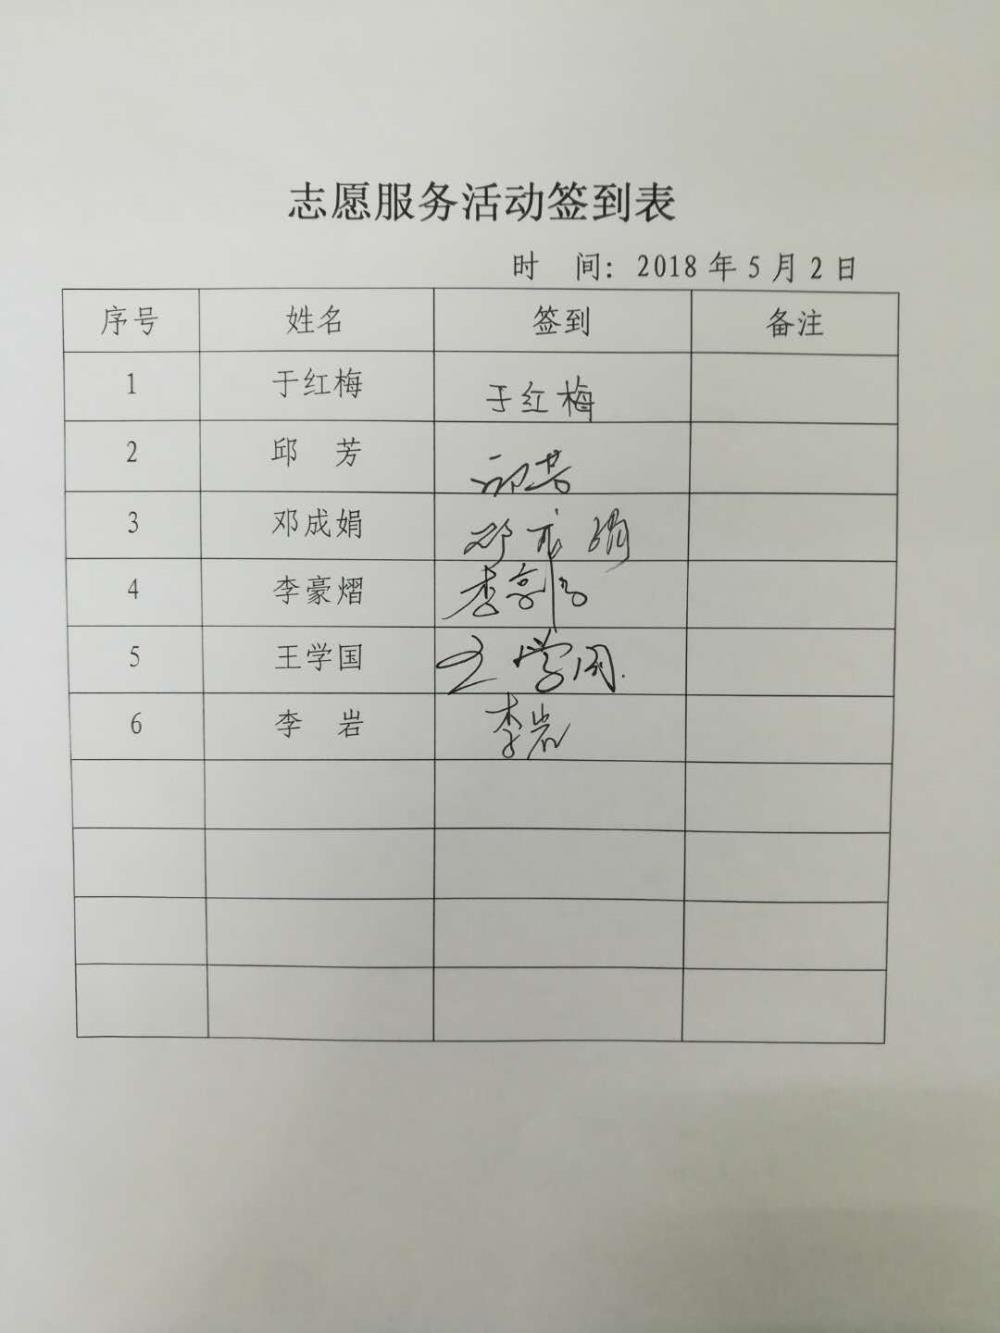 志愿服务活动签到表
时 间: 2018 年 5 月 2 日
序号 姓名 签到 备注
1 于红梅 于红梅
2 邱 芳 邱芳
3 邓成娟 邓成娟
4 李豪熠 李豪
5 王学国 王学国
6 李 岩 李岩